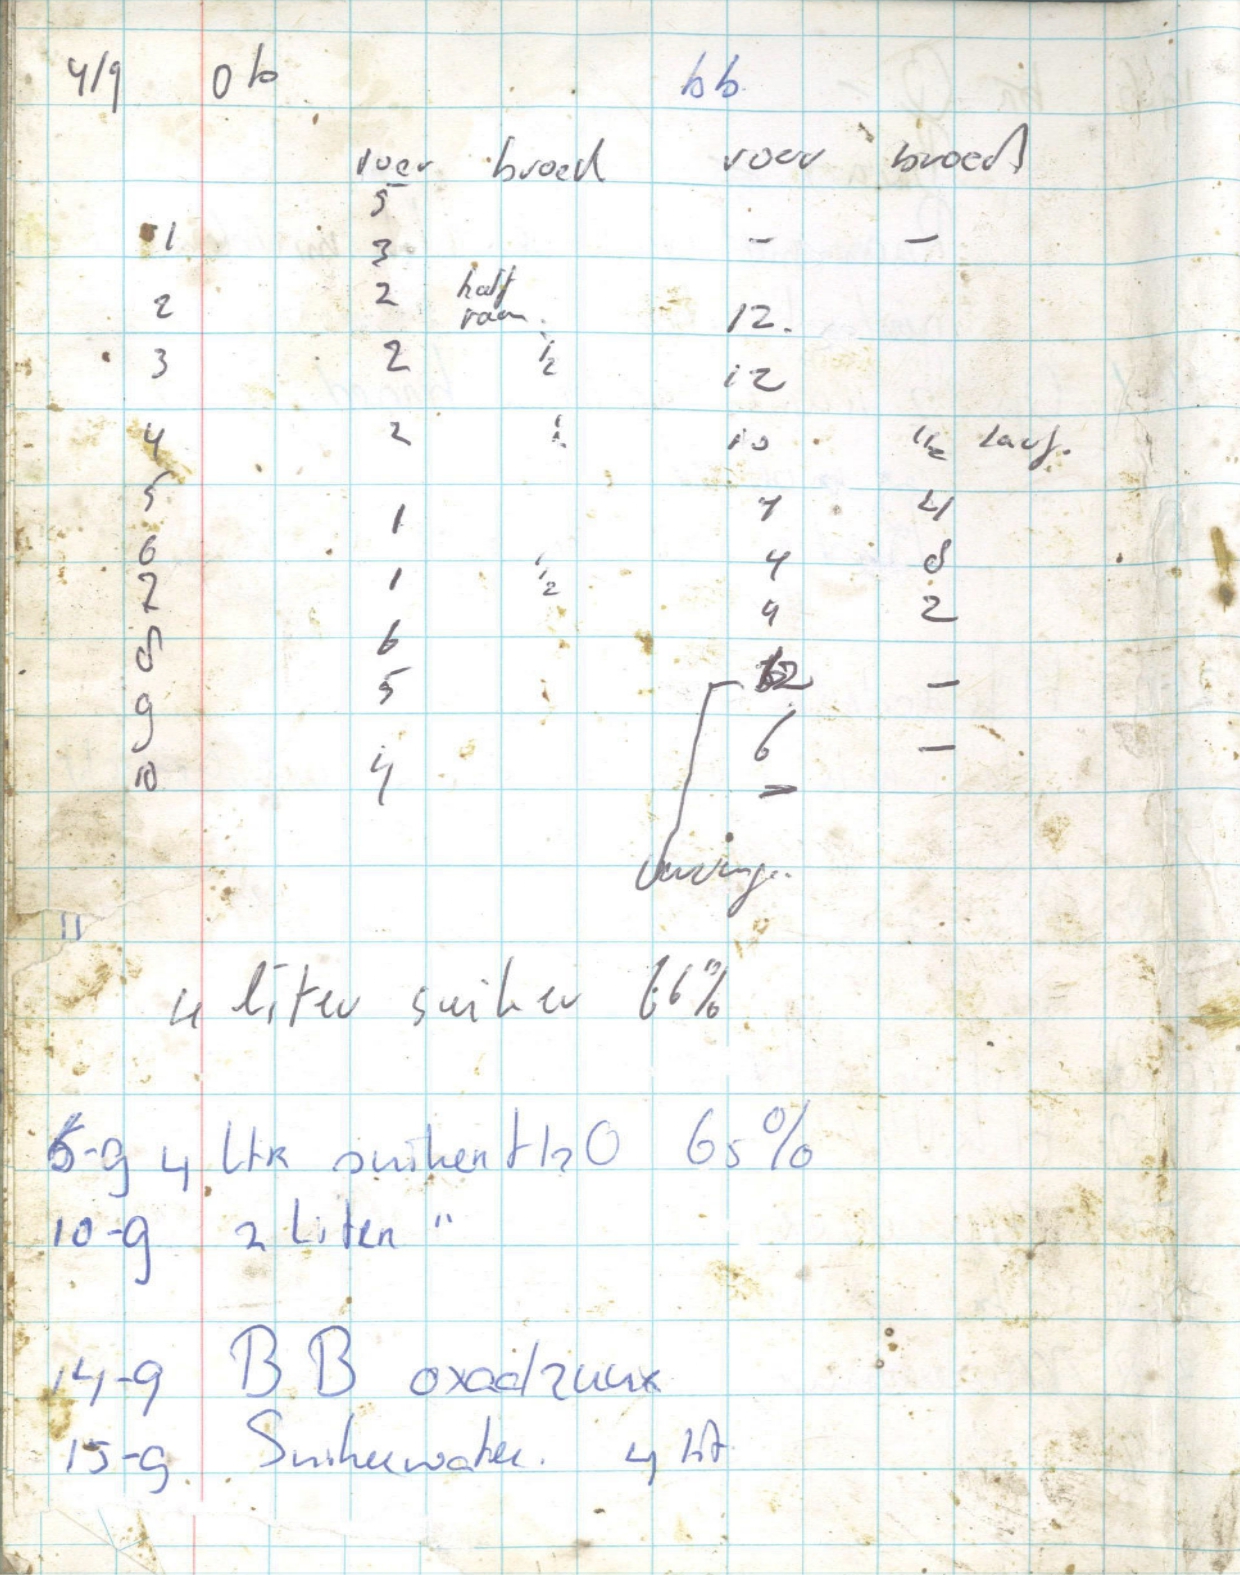 4/9 0b bb
voer broed voer broed
5
1 3 - -
2 2 half raam 12.
3 2 1/2 12
4 2 10 1/2
5 1 4 4
6 4 8
7 1 1/2 4 2
8 6 12 -
9 5 6 -
10 4 -
11
4 liter suiker 66%
5-9 4 ltr suiker + H2O 65%
10-9 2 liter "
14-9 BB oxaalzuur
15-9 Suikerwater. 4 lit